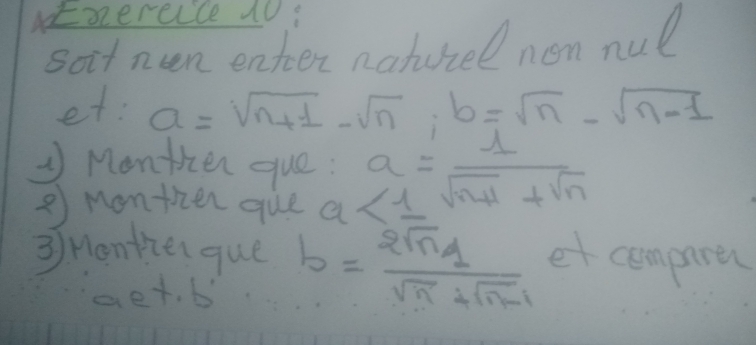 Exercice 10:
Soit n un entier naturel non nul
et: a = √n+1 - √n ; b = √n - √n-1
1) Montrer que: a = 1/(√n+1 + √n)
2) Montrer que a < 1/(2√n)
3) Montrer que b = 1/(√n + √n-1) et comparer
a et b